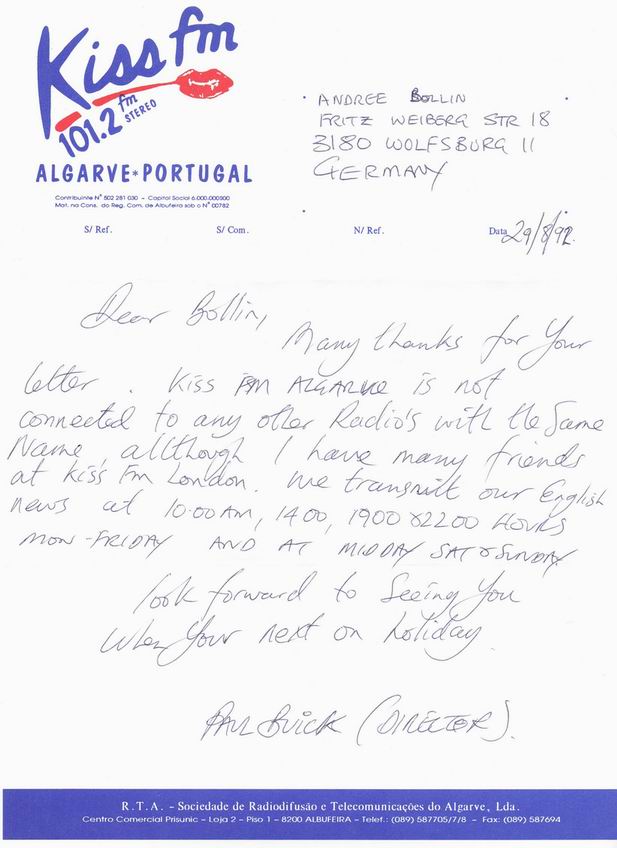 Kiss fm
101.2 fm STEREO
ALGARVE*PORTUGAL
Contribuinte Nº 502 281 030 - Capital Social 6.000.000$00
Mat. na Cons. do Reg. Com. de Albufeira sob o Nº 00782
ANDREE BOLLIN
FRITZ WEIBERG STR 18
3180 WOLFSBURG 11
GERMANY
S/ Ref. S/ Com. N/ Ref. Data 29/8/92.
Dear Bollin,
Many thanks for Your
letter. Kiss FM ALGARVE is not
connected to any other Radio's with the Same
Name, allthough I have many friends
at Kiss Fm London. We transmitt our English
news at 10.00AM, 1400, 1900 & 2200 HOURS
MON-FRIDAY AND AT MIDDAY SAT & SUNDAY.
look forward to Seeing You
when Your next on holiday.
PAUL BUICK (DIRECTOR).
R.T.A. - Sociedade de Radiodifusão e Telecomunicações do Algarve, Lda.
Centro Comercial Prisunic - Loja 2 - Piso 1 - 8200 ALBUFEIRA - Telef.: (089) 587705/7/8 - Fax: (089) 587694